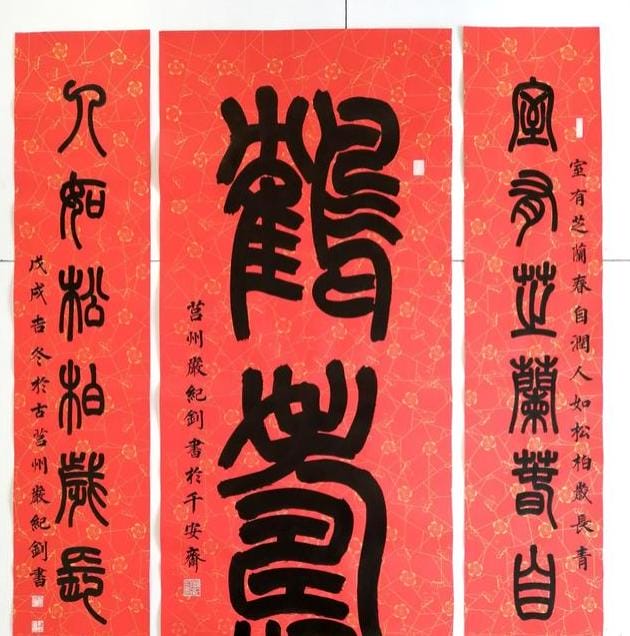 室有芝蘭春自潤人如松柏歲長青
室有芝蘭春自
鶴壽
莒州嚴紀釗書於千安齋
人如松柏歲長
戊戌吉冬於古莒州嚴紀釗書